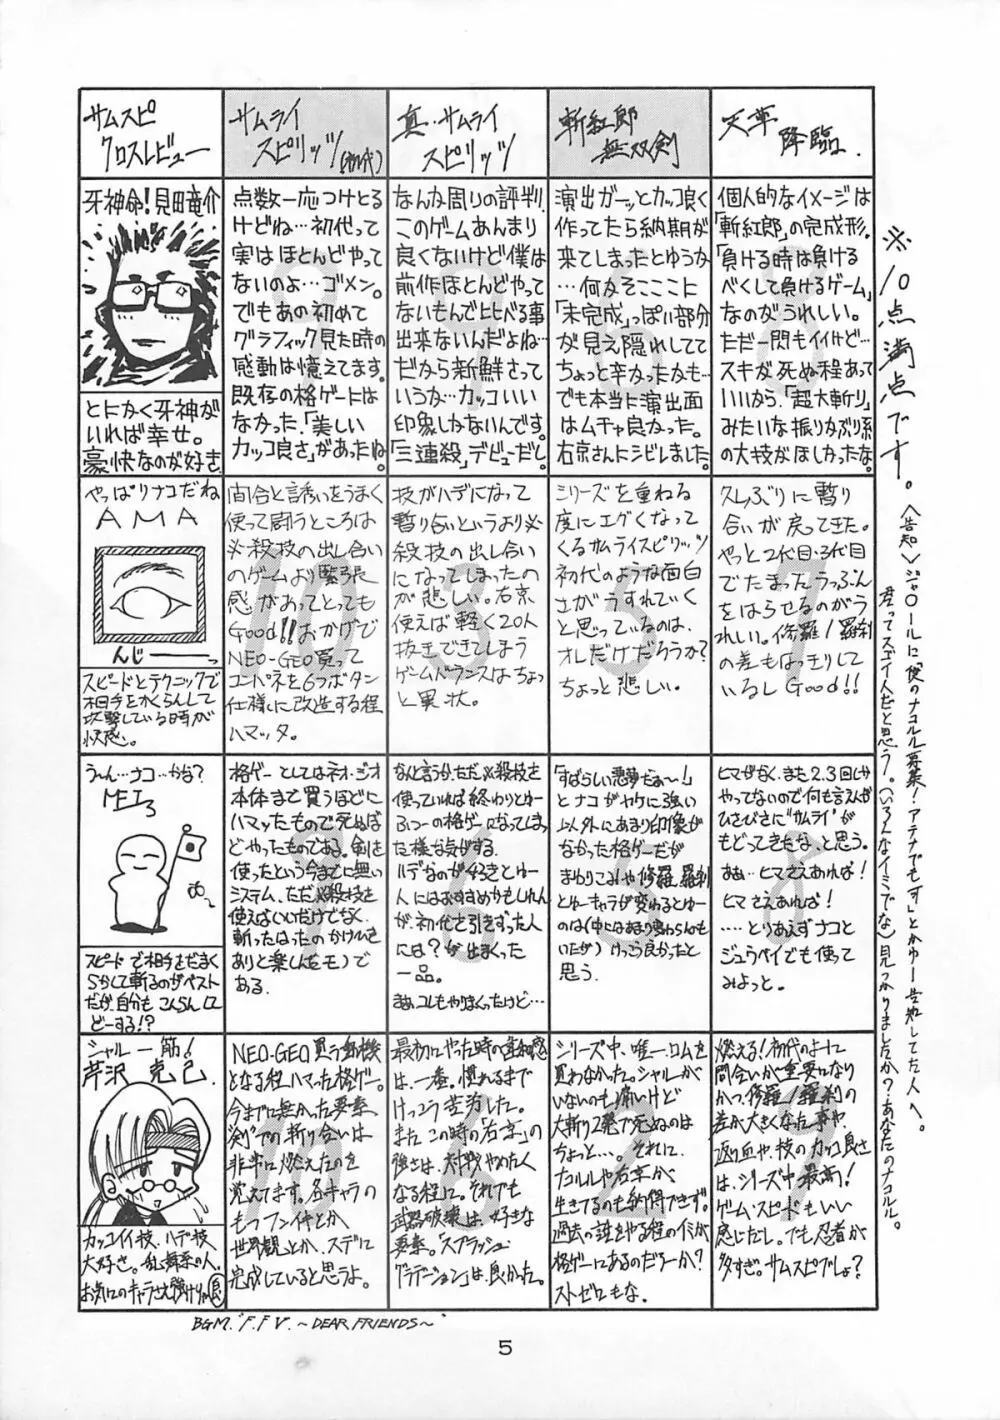 サムスピ
クロスレビュー
サムライ
スピリッツ(初代)
真・サムライ
スピリッツ
斬紅郎
無双剣
天草
降臨
牙神命!見田竜介
とにかく牙神が
いれば幸せ。
豪快なのが好き
点数一応つけとる
けどね…初代って
実はほとんどやって
ないのよ…ゴメン。
でもあの初めて
グラフィック見た時の
感動は憶えてます。
既存の格ゲーには
なかった「美しい
カッコ良さ」があったね。
9
なんか周りの評判、
このゲームあんまり
良くないけど僕は
前作ほとんどやって
ないもんで比べる事
出来ないんだよね…
だから新鮮さって
いうか…カッコいい
印象しかないんです。
「三連殺」デビューだし。
9
演出ガーッとカッコ良く
作ってたら納期が
来てしまったとゆうか
…何かそこここに
「未完成」っぽい部分
が見え隠れしてて
ちょっと辛かったかも…
でも本当に演出面
はムチャ良かった。
右京さんにシビレました。
6
個人的なイメージは
「斬紅郎」の完成形。
「負ける時は負ける
べくして負けるゲーム」
なのがうれしい。
ただ一閃もイイけど…
スキが死ぬ程あって
いいから、「超大斬り」
みたいな振りかぶり系
の大技がほしかったな。
8
やっぱりナコだね
AMA
んじーーっ
スピードとテクニックで
相手をかくらんして
攻撃している時が
快感。
間合と誘いをうまく
使って闘うところは
必殺技の出し合い
のゲームより緊張
感があってとっても
Good!!おかげで
NEO-GEO買って
コンパネを6つボタン
仕様に改造する程
ハマッタ。
10
技がハデになって
斬り合いというより必
殺技の出し合い
になってしまったの
が悲しい。右京
使えば軽く20人
抜きできてしまう
ゲームバランスはちょっ
と異状。
3
シリーズを重ねる
度にエグくなって
くるサムライスピリッツ
初代のような面白
さがうすれていく
と思っているのは、
オレだけだろうか?
ちょっと悲しい。
5
久しぶりに斬り
合いが戻ってきた。
やっと2代目、3代目
でたまったうっぷん
をはらせるのがう
れしい。修羅/羅刹
の差もはっきりして
いるしGood!!
7
う〜ん…ナコ…かな?
スピードで相手をだまく
らかして斬るのがベスト
だが、自分もこんらんして
どーする!?
格ゲーとしてはネオ・ジオ
本体まで買うほどに
ハマったもので死ぬほ
どやったものである。剣を
使ったという今までに無い
システム、ただ必殺技を
使えばいいだけでなく、
斬ったはったのかけひきを
ありと楽しんだモノで
ある。
9
なんと言うか、ただ必殺技を
使っていれば終わりとゆー
ふつーの格ゲーになってしまっ
た様な気がする。
ハデなのが好きとゆー
人にはおすすめかもしれん
が、初代を引きずった人
には?が出まくった
一品。
まぁ、コレもやりまくったけど…
6
「すばらしい悪夢だぁ〜!」
とナコがヤケに強い
以外にあまり印象が
なかった格ゲーだが
まわりこみや修羅、羅刹
とゆーキャラが変わるとゆー
のは(中にはあまり変わらんも
いたが)けっこう良かったと
思う。
5
ヒマがなく、また2.3回しか
やってないので何も言えんが
ひさびさに“サムライ”が
もどってきたな、と思う。
まぁ…ヒマさえあれば!
ヒマさえあれば!
……とりあえずナコと
ジュウベイでも使って
みよっと。
8
シャルー筋!
芹沢克己
カッコイイ技、ハデな技
大好き。乱舞系の人。
NEO-GEO買う動機
となる程ハマった格ゲー。
今までに無かった要素
“剣”での斬り合いは
非常に燃えたのを
覚えてます。各キャラの
もつフンイキとか
世界観とか、スデに
完成していると思うよ。
10
最初にやった時の違和感
は、一番。慣れるまで
けっこう苦労した。
またこの時の「右京」の
強さは、対戦やめたく
なる程に。それでも
武器破壊は、好きな
要素。「スプラッシュ・
グラデーション」は、良かった。
6
シリーズ中、唯一、ロムを
買わなかった。シャルがい
いないのも痛いけど
大斬り2発で死ぬのは
ちょっと…。それに、
ナコルルや右京が
生きてるのも納得できず。
過去の話をやる程のイミが
格ゲーにあるのだろーか?
ストゼロもな。
2
燃える!初代のように
間合いが重要になり
かつ、修羅/羅刹の
差が大きくなった事や、
返り血や、技のカッコ良さ
は、シリーズ中、最高!
ゲーム・スピードもいい
感じだし。でも、忍者が
多すぎ。サムスピでしょ?
9
※10点満点です。
BGM.“F.F V. 〜DEAR FRIENDS〜”
5